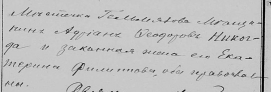 Мѣстечка Тельмязова Мѣща-
нинъ Адріанъ Ѳеодоровъ Никог-
да и законная жена его Ека-
терина Филиппова, оба православ-
ны.